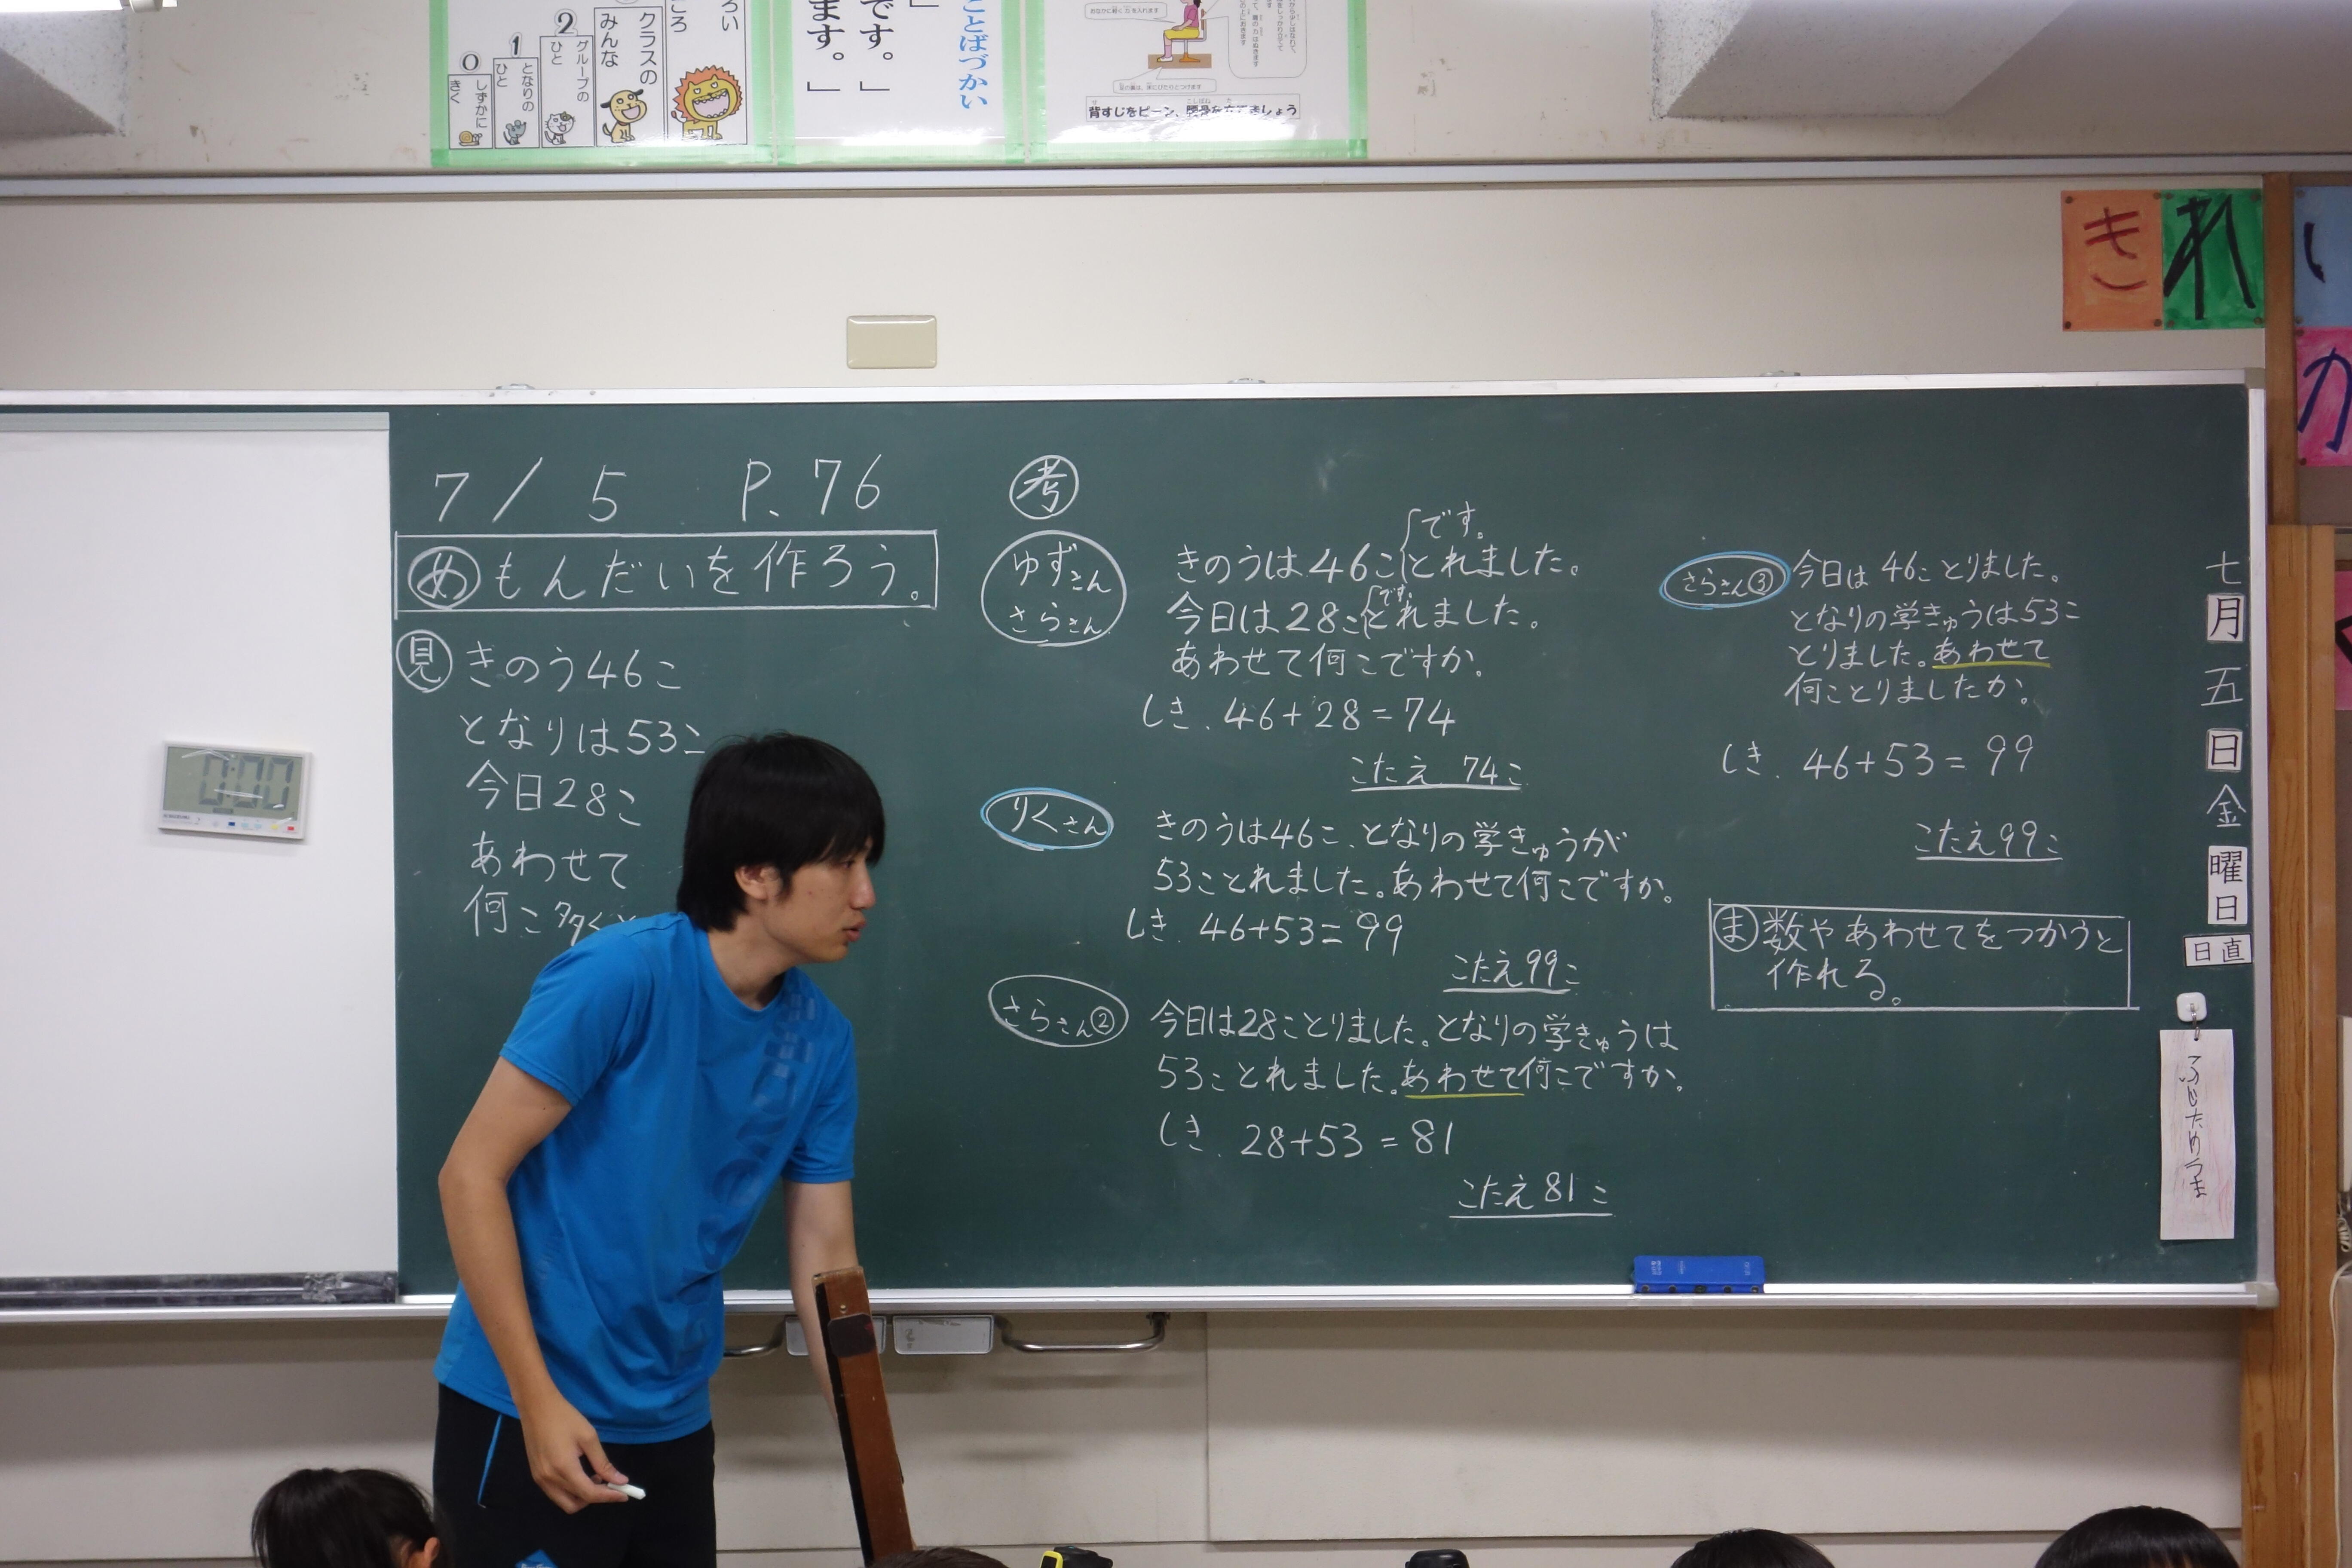 0
しずかに
きく
1
となりの
ひと
2
グループの
ひと
クラスの
みんな
ろい
ころ
です。」
ます。」
ことばづかい
背すじをピーン、腰骨を立てましょう
きれい
か
7/5 P.76
め もんだいを作ろう。
見 きのう46こ
となりは53こ
今日28こ
あわせて
何こ多く
考
ゆずさん
さらさん
です。
きのうは46ことれました。
です。
今日は28ことれました。
あわせて何こですか。
しき.46+28=74
こたえ 74こ
りくさん
きのうは46こ、となりの学きゅうが
53ことれました。あわせて何こですか。
しき.46+53=99
こたえ99こ
さらさん②
今日は28ことりました。となりの学きゅうは
53ことれました。あわせて何こですか。
しき.28+53=81
こたえ81こ
さらさん③
今日は46ことりました。
となりの学きゅうは53こ
とりました。あわせて
何ことりましたか。
しき.46+53=99
こたえ99こ
ま 数やあわせてをつかうと
作れる。
七月五日金曜日
日直
0:00